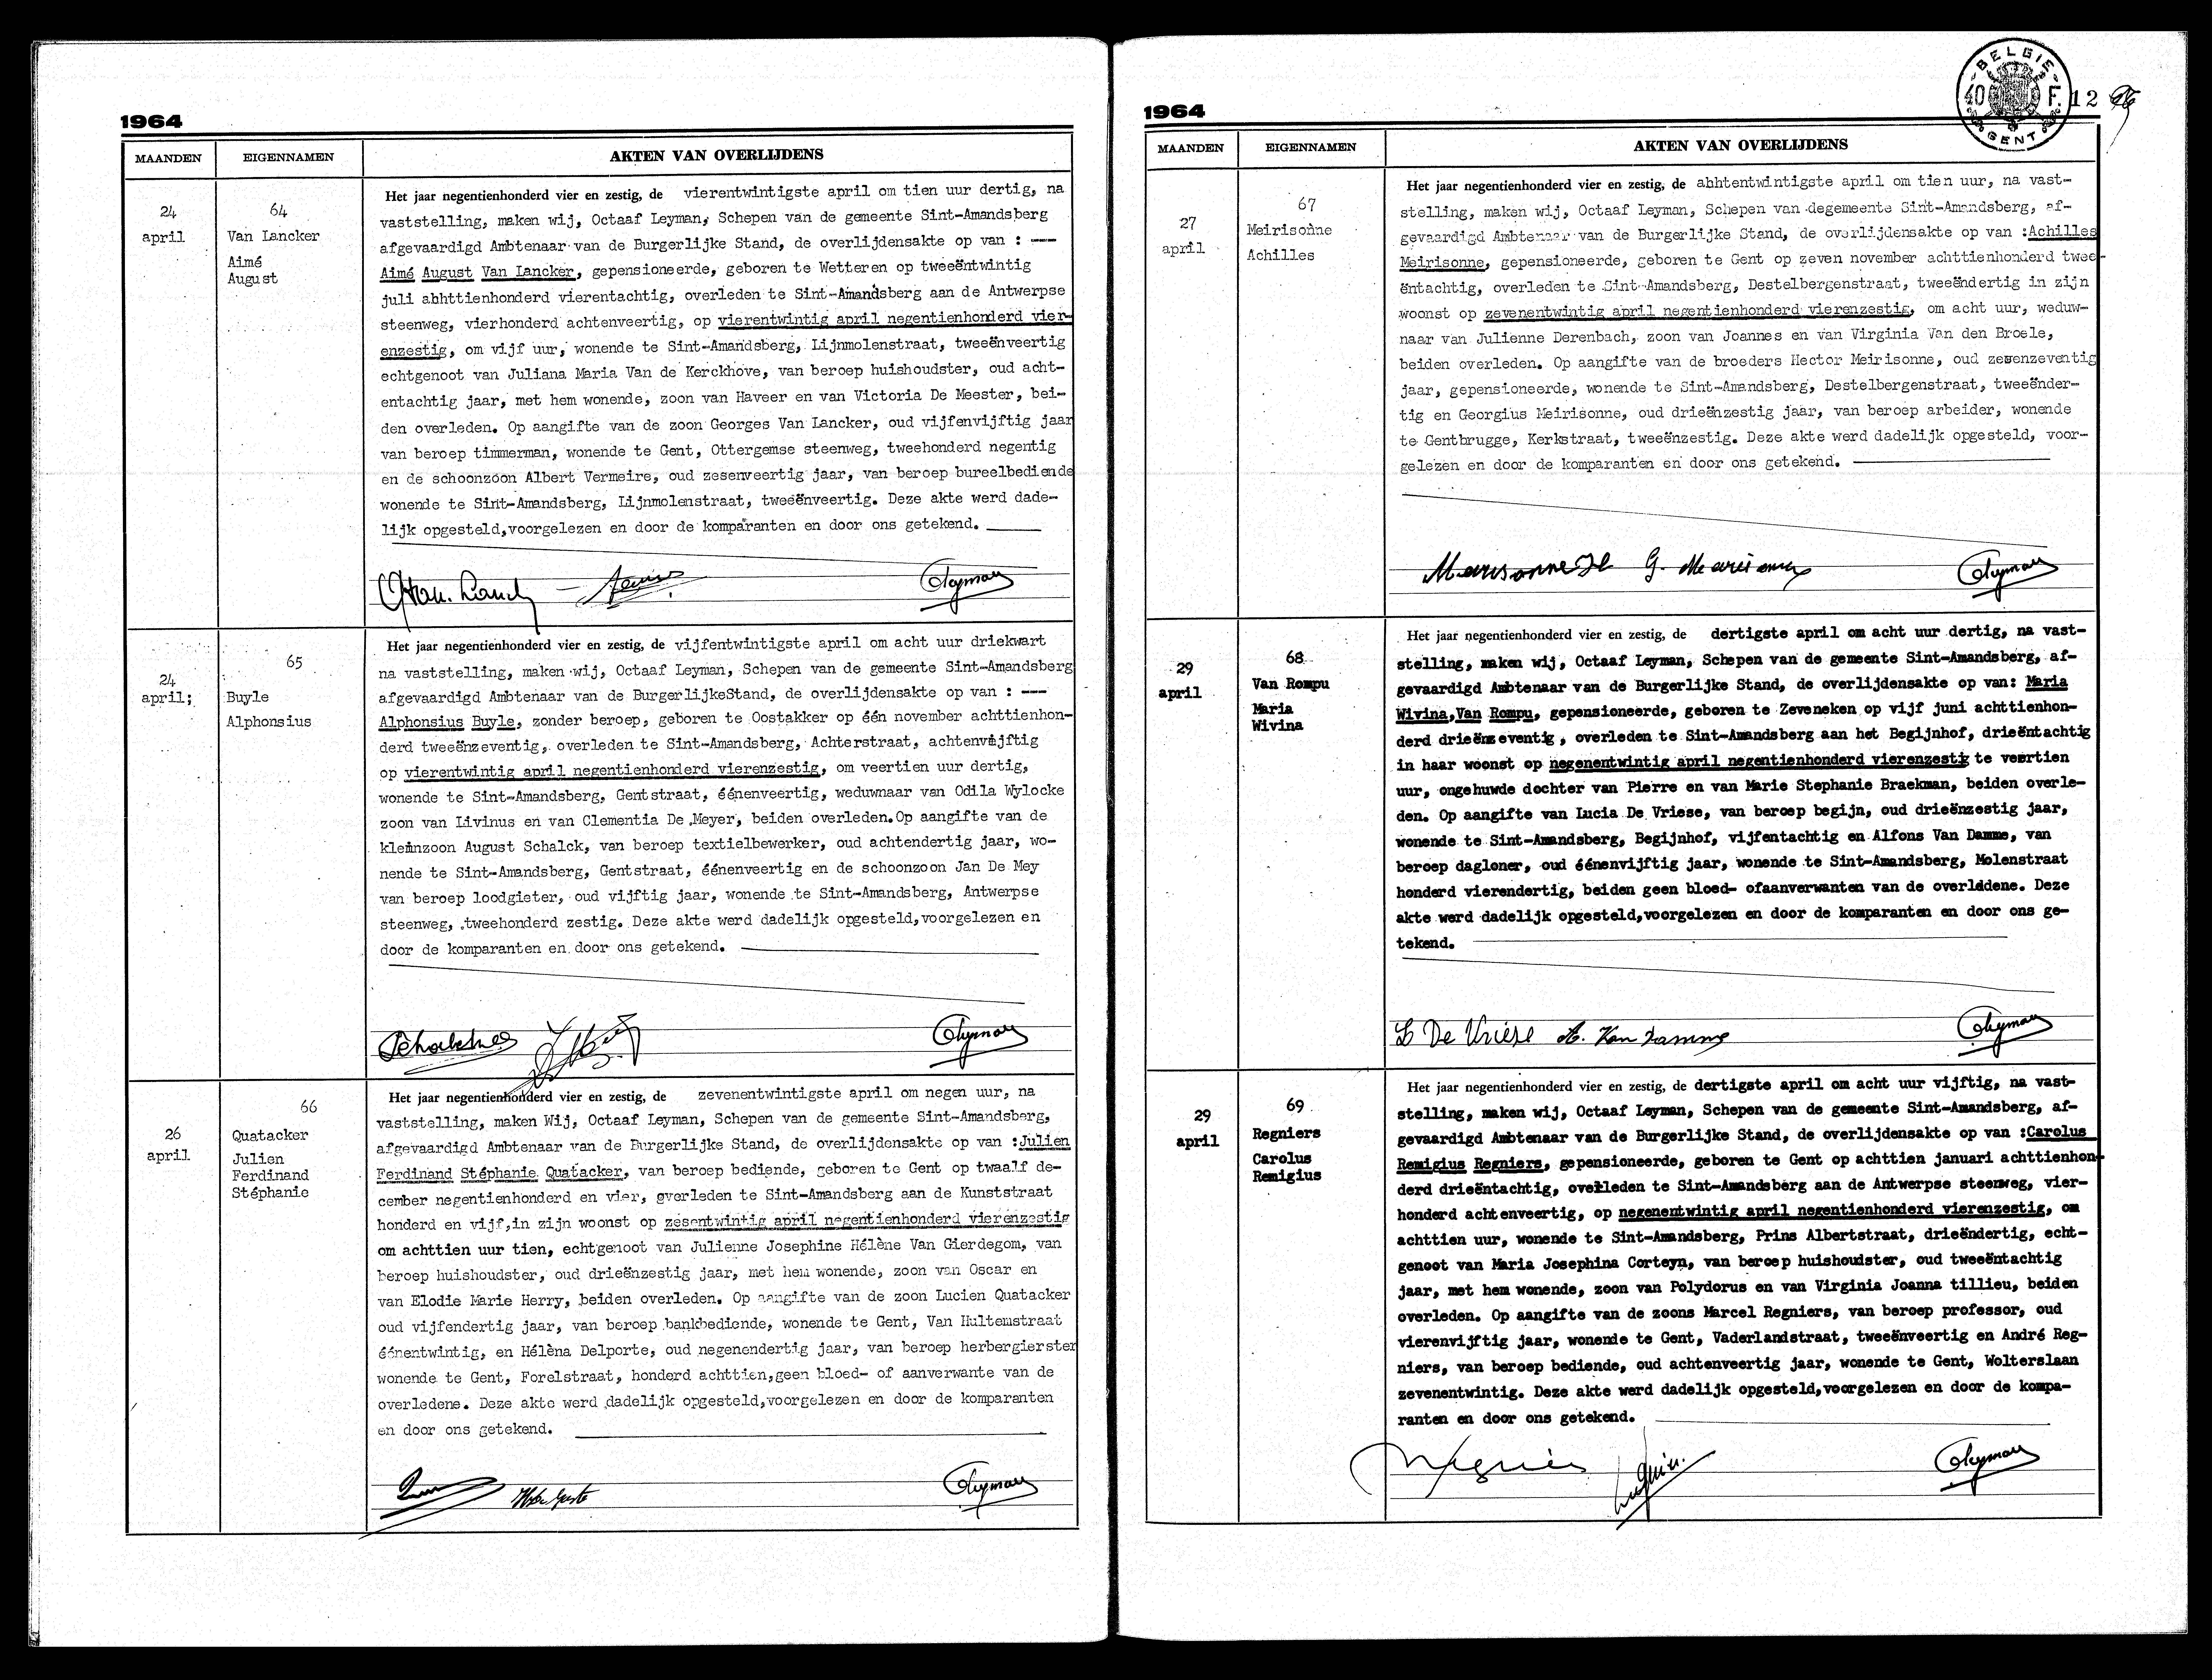 1964
MAANDEN EIGENNAMEN AKTEN VAN OVERLIJDENS
24
april
64
Van Lancker
Aimé
August
Het jaar negentienhonderd vier en zestig, de vierentwintigste april om tien uur dertig, na
vaststelling, maken wij, Octaaf Leyman, Schepen van de gemeente Sint-Amandsberg
afgevaardigd Ambtenaar van de Burgerlijke Stand, de overlijdensakte op van : ---
Aimé August Van Lancker, gepensioneerde, geboren te Wetteren op tweeëntwintig
juli abhttienhonderd vierentachtig, overleden te Sint-Amandsberg aan de Antwerpse
steenweg, vierhonderd achtenveertig, op vierentwintig april negentienhonderd vier-
enzestig, om vijf uur, wonende te Sint-Amandsberg, Lijnmolenstraat, tweeënveertig
echtgenoot van Juliana Maria Van de Kerckhove, van beroep huishoudster, oud acht-
entachtig jaar, met hem wonende, zoon van Haveer en van Victoria De Meester, bei-
den overleden. Op aangifte van de zoon Georges Van Lancker, oud vijfenvijftig jaar
van beroep timmerman, wonende te Gent, Ottergemse steenweg, tweehonderd negentig
en de schoonzoon Albert Vermeire, oud zesenveertig jaar, van beroep bureelbediende
wonende te Sint-Amandsberg, Lijnmolenstraat, tweeënveertig. Deze akte werd dade-
lijk opgesteld,voorgelezen en door de komparanten en door ons getekend.
24
april;
65
Buyle
Alphonsius
Het jaar negentienhonderd vier en zestig, de vijfentwintigste april om acht uur driekwart
na vaststelling, maken wij, Octaaf Leyman, Schepen van de gemeente Sint-Amandsberg
afgevaardigd Ambtenaar van de BurgerlijkeStand, de overlijdensakte op van : ---
Alphonsius Buyle, zonder beroep, geboren te Oostakker op één november achttienhon-
derd tweeënzeventig, overleden te Sint-Amandsberg, Achterstraat, achtenvijftig
op vierentwintig april negentienhonderd vierenzestig, om veertien uur dertig,
wonende te Sint-Amandsberg, Gentstraat, éénenveertig, weduwnaar van Odila Wylocke
zoon van Livinus en van Clementia De Meyer, beiden overleden.Op aangifte van de
kleinzoon August Schalck, van beroep textielbewerker, oud achtendertig jaar, wo-
nende te Sint-Amandsberg, Gentstraat, éénenveertig en de schoonzoon Jan De Mey
van beroep loodgieter, oud vijftig jaar, wonende te Sint-Amandsberg, Antwerpse
steenweg, tweehonderd zestig. Deze akte werd dadelijk opgesteld,voorgelezen en
door de komparanten en door ons getekend.
26
april
66
Quatacker
Julien
Ferdinand
Stéphanie
Het jaar negentienhonderd vier en zestig, de zevenentwintigste april om negen uur, na
vaststelling, maken Wij, Octaaf Leyman, Schepen van de gemeente Sint-Amandsberg,
afgevaardigd Ambtenaar van de Burgerlijke Stand, de overlijdensakte op van :Julien
Ferdinand Stéphanie Quatacker, van beroep bediende, geboren te Gent op twaalf de-
cember negentienhonderd en vier, overleden te Sint-Amandsberg aan de Kunststraat
honderd en vijf,in zijn woonst op zesentwintig april negentienhonderd vierenzestig
om achttien uur tien, echtgenoot van Julienne Josephine Hélène Van Gierdegom, van
beroep huishoudster, oud drieënzestig jaar, met hem wonende, zoon van Oscar en
van Elodie Marie Herry, beiden overleden. Op aangifte van de zoon Lucien Quatacker
oud vijfendertig jaar, van beroep bankbediende, wonende te Gent, Van Hultemstraat
éénentwintig, en Hélèna Delporte, oud negenendertig jaar, van beroep herbergierster
wonende te Gent, Forelstraat, honderd achttien,geen bloed- of aanverwante van de
overledene. Deze akte werd dadelijk opgesteld,voorgelezen en door de komparanten
en door ons getekend.
1964
BELGIE
40 F.
GENT
12
MAANDEN EIGENNAMEN AKTEN VAN OVERLIJDENS
27
april
67
Meirisonne
Achilles
Het jaar negentienhonderd vier en zestig, de abhtentwintigste april om tien uur, na vast-
stelling, maken wij, Octaaf Leyman, Schepen van degemeente Sint-Amandsberg, af-
gevaardigd Ambtenaar van de Burgerlijke Stand, de overlijdensakte op van :Achilles
Meirisonne, gepensioneerde, geboren te Gent op zeven november achttienhonderd twee-
ëntachtig, overleden te Sint-Amandsberg, Destelbergenstraat, tweeëndertig in zijn
woonst op zevenentwintig april negentienhonderd vierenzestig, om acht uur, weduw-
naar van Julienne Derenbach, zoon van Joannes en van Virginia Van den Broele,
beiden overleden. Op aangifte van de broeders Hector Meirisonne, oud zesenzeventig
jaar, gepensioneerde, wonende te Sint-Amandsberg, Destelbergenstraat, tweeënder-
tig en Georgius Meirisonne, oud drieënzestig jaar, van beroep arbeider, wonende
te Gentbrugge, Kerkstraat, tweeënzestig. Deze akte werd dadelijk opgesteld, voor-
gelezen en door de komparanten en door ons getekend.
29
april
68
Van Rompu
Maria
Wivina
Het jaar negentienhonderd vier en zestig, de dertigste april om acht uur dertig, na vast-
stelling, maken wij, Octaaf Leyman, Schepen van de gemeente Sint-Amandsberg, af-
gevaardigd Ambtenaar van de Burgerlijke Stand, de overlijdensakte op van: Maria
Wivina,Van Rompu, gepensioneerde, geboren te Zeveneken op vijf juni achttienhon-
derd drieënzeventig, overleden te Sint-Amandsberg aan het Begijnhof, drieëntachtig
in haar woonst op negenentwintig april negentienhonderd vierenzestig te veertien
uur, ongehuwde dochter van Pierre en van Marie Stephanie Braekman, beiden overle-
den. Op aangifte van Lucia De Vriese, van beroep begijn, oud drieënzestig jaar,
wonende te Sint-Amandsberg, Begijnhof, vijfentachtig en Alfons Van Damme, van
beroep dagloner, oud éénenvijftig jaar, wonende te Sint-Amandsberg, Molenstraat
honderd vierendertig, beiden geen bloed- ofaanverwanten van de overledene. Deze
akte werd dadelijk opgesteld,voorgelezen en door de komparanten en door ons ge-
tekend.
L De Vriese A. Van Damme
29
april
69
Regniers
Carolus
Remigius
Het jaar negentienhonderd vier en zestig, de dertigste april om acht uur vijftig, na vast-
stelling, maken wij, Octaaf Leyman, Schepen van de gemeente Sint-Amandsberg, af-
gevaardigd Ambtenaar van de Burgerlijke Stand, de overlijdensakte op van :Carolus
Remigius Regniers, gepensioneerde, geboren te Gent op achttien januari achttienhon-
derd drieëntachtig, overleden te Sint-Amandsberg aan de Antwerpse steenweg, vier-
honderd achtenveertig, op negenentwintig april negentienhonderd vierenzestig, om
achttien uur, wonende te Sint-Amandsberg, Prins Albertstraat, drieëndertig, echt-
genoot van Maria Josephina Corteyn, van beroep huishoudster, oud tweeëntachtig
jaar, met hem wonende, zoon van Polydorus en van Virginia Joanna tillieu, beiden
overleden. Op aangifte van de zoons Marcel Regniers, van beroep professor, oud
vierenvijftig jaar, wonende te Gent, Vaderlandstraat, tweeënveertig en André Reg-
niers, van beroep bediende, oud achtenveertig jaar, wonende te Gent, Wolterslaan
zevenentwintig. Deze akte werd dadelijk opgesteld,voorgelezen en door de kompa-
ranten en door ons getekend.